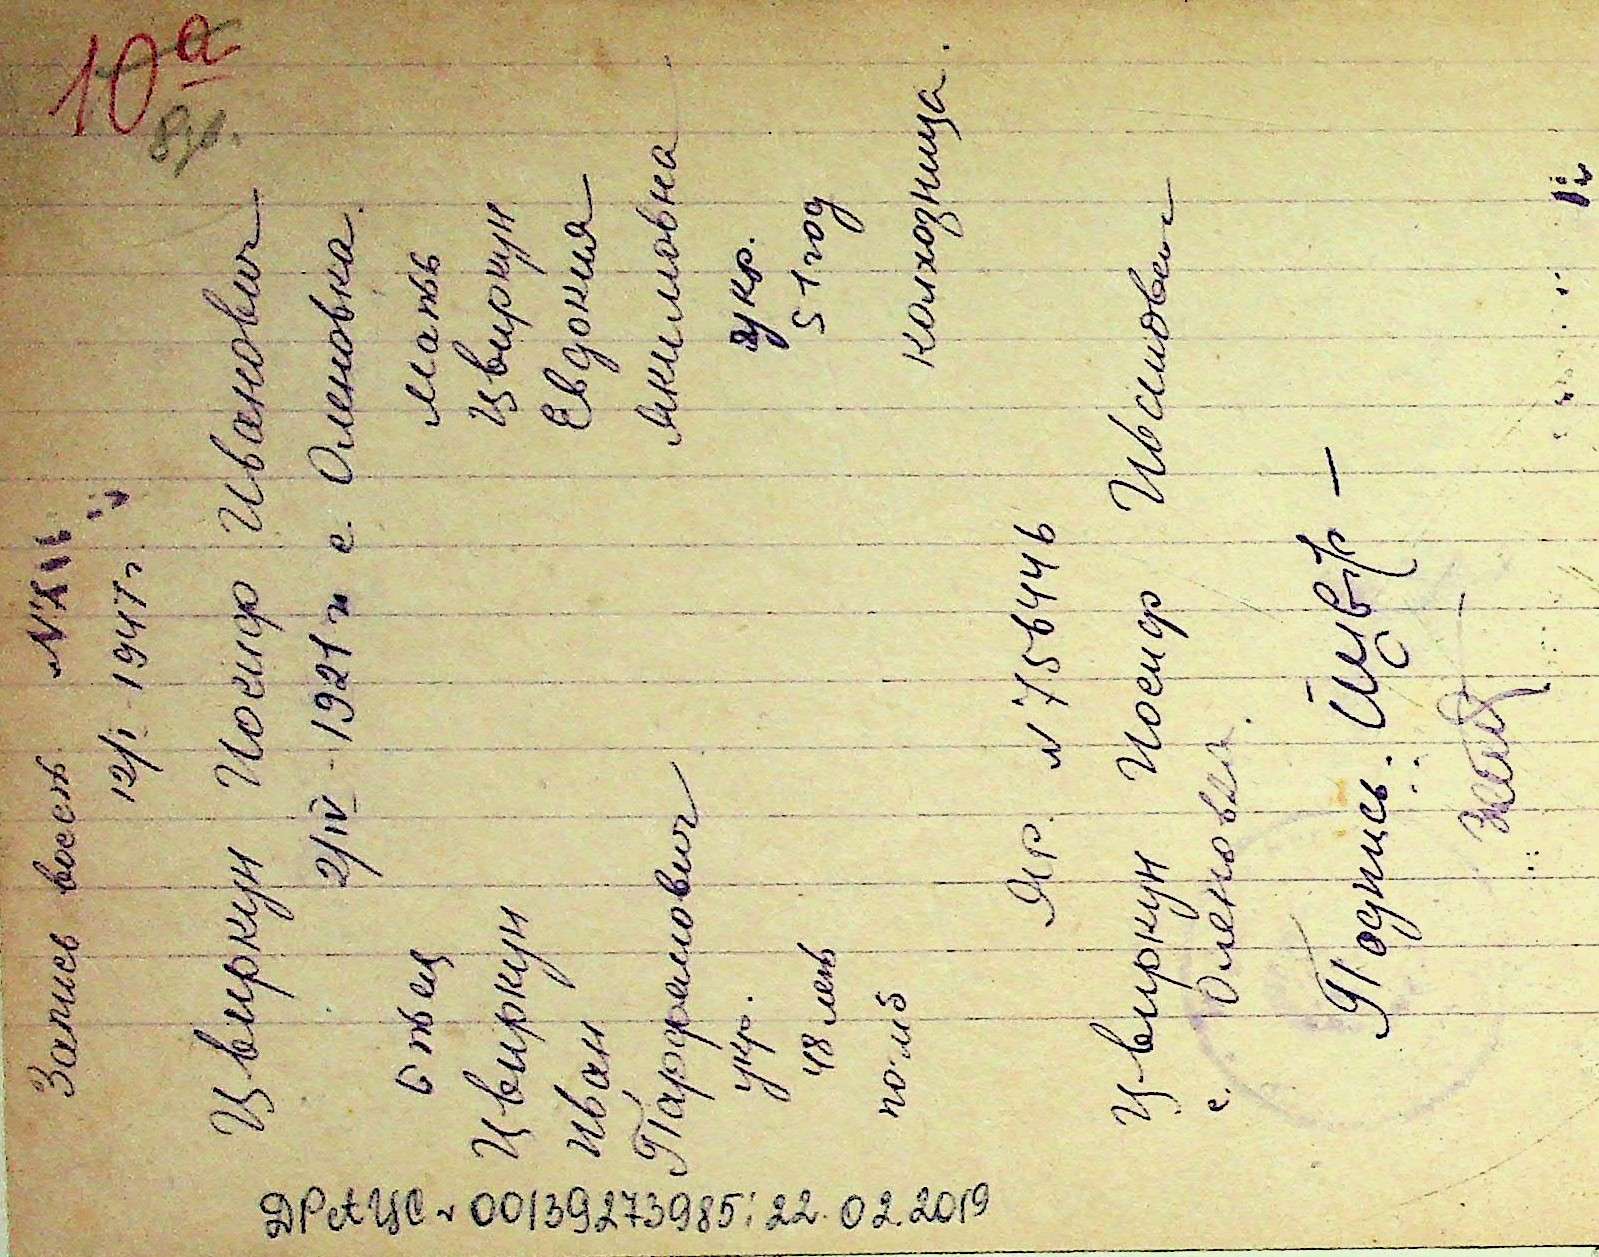 10а
Запись восст №
12/I-1947 г.
Цвиркун Иосиф Иванович
2/IV-1921 г с. Оленовка.
Отец
Цвиркун
Иван
Парфемович
укр.
48 лет
мать
Цвиркун
Евдокия
Якимовна
укр.
51 год
колхозница.
ЯР. № 756446
Цвиркун Иосиф Иванович
с. Оленовка.
Подпись:
ДРАЦС 00139273985; 22.02.2019